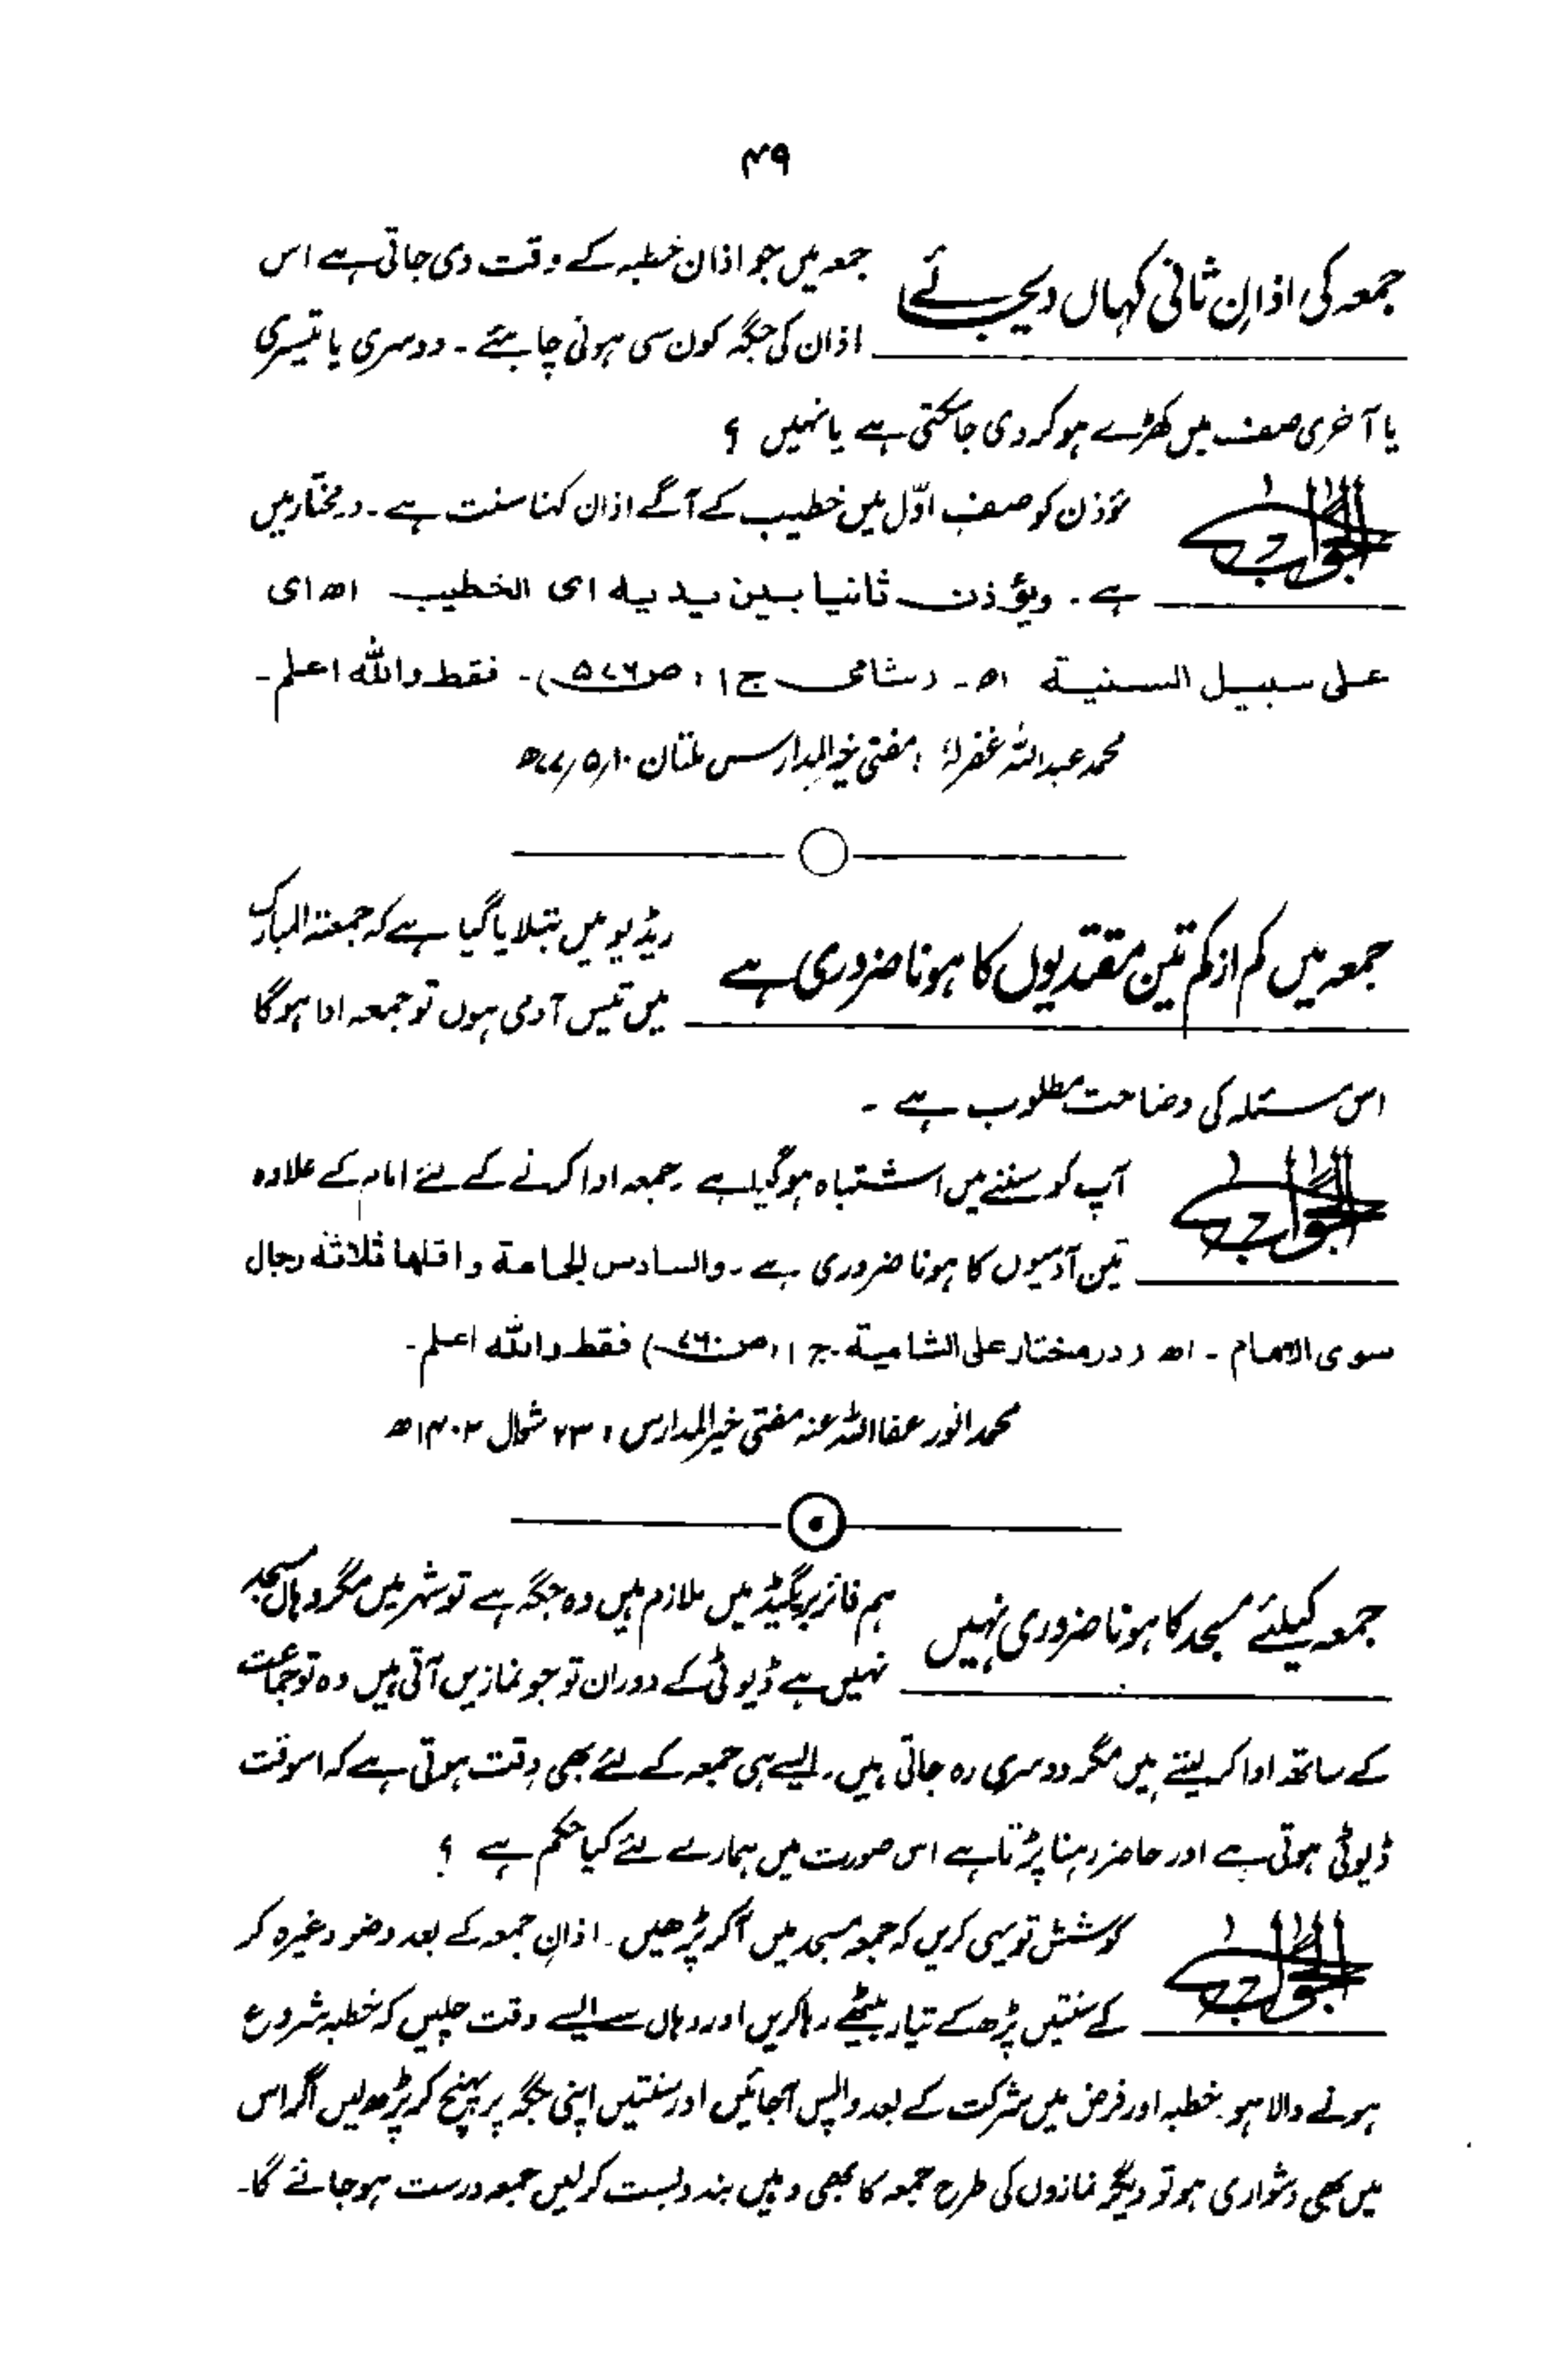 ۴۹
جمعہ کی اذانِ ثانی کہاں دیجائے
جمعہ میں جو اذان خطبہ کے وقت دی جاتی ہے اس
اذان کی جگہ کون سی ہونی چاہئے ۔ دوسری یا تیسری
یا آخری صف میں کھڑے ہو کر دی جا سکتی ہے یا نہیں ؟
الجواب
مؤذن کو صفِ اوّل میں خطیب کے آگے اذان کہنا سنت ہے ۔ درمختار میں
ہے ۔ ویؤذن ثانیا بین یدیہ ای الخطیب اھ ای
علی سبیل السنیۃ اھ ۔ (شامی ج ۱ ، ص ۵۷۶) ۔ فقط واللہ اعلم ۔
محمد عبداللہ غفرلہٗ ، مفتی خیر المدارس ملتان ۱۰/۵/۷۷ھ
جمعہ میں کم از کم تین مقتدیوں کا ہونا ضروری ہے
ریڈیو میں بتلایا گیا ہے کہ جمعۃ المبارک
میں تیس آدمی ہوں تو جمعہ ادا ہوگا
اس مسئلہ کی وضاحت مطلوب ہے ۔
الجواب
آپ کو سننے میں اشتباہ ہوگیا ہے ۔ جمعہ ادا کرنے کے لئے امام کے علاوہ
تین آدمیوں کا ہونا ضروری ہے ۔ والسادس الجماعۃ و اقلھا ثلاثۃ رجال
سوی الامام ۔ اھ (درمختار علی الشامیۃ ج ۱ ، ص ۷۶۰) فقط واللہ اعلم ۔
محمد انور عفا اللہ عنہ مفتی خیر المدارس ، ۲۳ شوال ۱۴۰۲ھ
جمعہ کیلئے مسجد کا ہونا ضروری نہیں
ہم فائر بریگیڈ میں ملازم ہیں وہ جگہ ہے تو شہر میں مگر وہاں مسجد
نہیں ہے ڈیوٹی کے دوران تو جو نمازیں آتی ہیں وہ تو جماعت
کے ساتھ ادا کر لیتے ہیں مگر دوسری رہ جاتی ہیں ۔ ایسے ہی جمعہ کے لئے بھی دقت ہوتی ہے کہ اسوقت
ڈیوٹی ہوتی ہے اور حاضر رہنا پڑتا ہے اس صورت میں ہمارے لئے کیا حکم ہے ؟
الجواب
کوشش تو یہی کریں کہ جمعہ مسجد میں آکر پڑھیں ۔ اذانِ جمعہ کے بعد وضو وغیرہ کر
کے سنتیں پڑھ کے تیار بیٹھے رہا کریں اور وہاں سے ایسے وقت چلیں کہ خطبہ شروع
ہونے والا ہو ۔ خطبہ اور فرض میں شرکت کے بعد واپس آجائیں اور سنتیں اپنی جگہ پر پہنچ کر پڑھ لیں اگر اس
میں بھی دشواری ہو تو دیگر نمازوں کی طرح جمعہ کا بھی وہیں بندوبست کر لیں جمعہ درست ہو جائے گا ۔